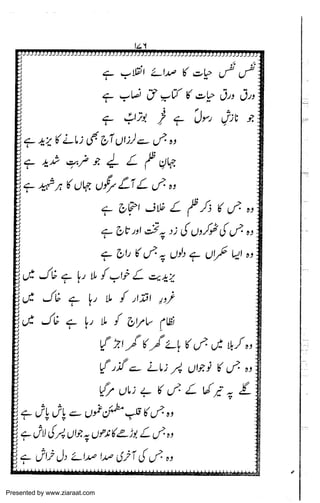 ۱۷۶
نفس نفس حیات کا صدائے انقلاب ہے
ورق ورق حیات کا کتاب حق نصاب ہے
جو نازش رسول ہے فخر بوتراب ہے
وہ جس سے لرزاں آج بھی زمانے کا یزید ہے
جہان ظلم کے لیے جو ضربت شدید ہے
وہ جس کے آگے سرنگوں جہاں کا ہر شہید ہے
وہ جس کا ذکر ظلم کے خلاف احتجاج ہے
وہ جس کی ٹھوکروں کی زد پہ تخت اور تاج ہے
وہ ایسا حکمراں ہے دلوں پہ جس کا راج ہے
یزیدیت کے خواب کو ملا رہا ہے خاک میں
غرور اقتدار کو ملا رہا ہے خاک میں
نظام سامراج کو ملا رہا ہے خاک میں
وہ کربلا میں جس کا ہائے گھر کا گھر اجڑ گیا
وہ جس کا نوجواں پسر زمانے سے گذر گیا
گلے پہ تیر کھا کے جس کا بے زباں مر گیا
وہ جس کا قلب مطمئن غموں سے پاش پاش ہے
وہ جس کے بوڑھے کاندھوں پہ جواں پسر کی لاش ہے
وہ جس کی آخری صدا صدائے دل خراش ہے
Presented by www.ziaraat.com